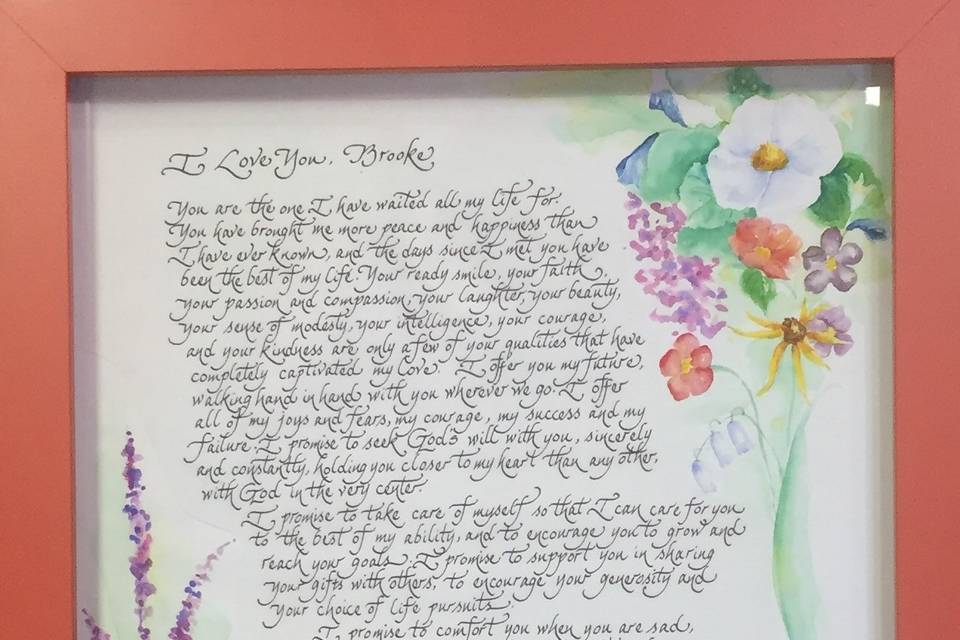 I Love You, Brooke
You are the one I have waited all my life for.
You have brought me more peace and happiness than
I have ever known, and the days since I met you have
been the best of my life. Your ready smile, your faith,
your passion and compassion, your laughter, your beauty,
your sense of modesty, your intelligence, your courage,
and your kindness are only a few of your qualities that have
completely captivated my love. I offer you my future,
walking hand in hand with you wherever we go. I offer
all of my joys and fears, my courage, my success and my
failure. I promise to seek God's will with you, sincerely
and constantly, holding you closer to my heart than any other,
with God in the very center.
I promise to take care of myself so that I can care for you
to the best of my ability, and to encourage you to grow and
reach your goals. I promise to support you in sharing
your gifts with others, to encourage your generosity and
your choice of life pursuits.
I promise to comfort you when you are sad,